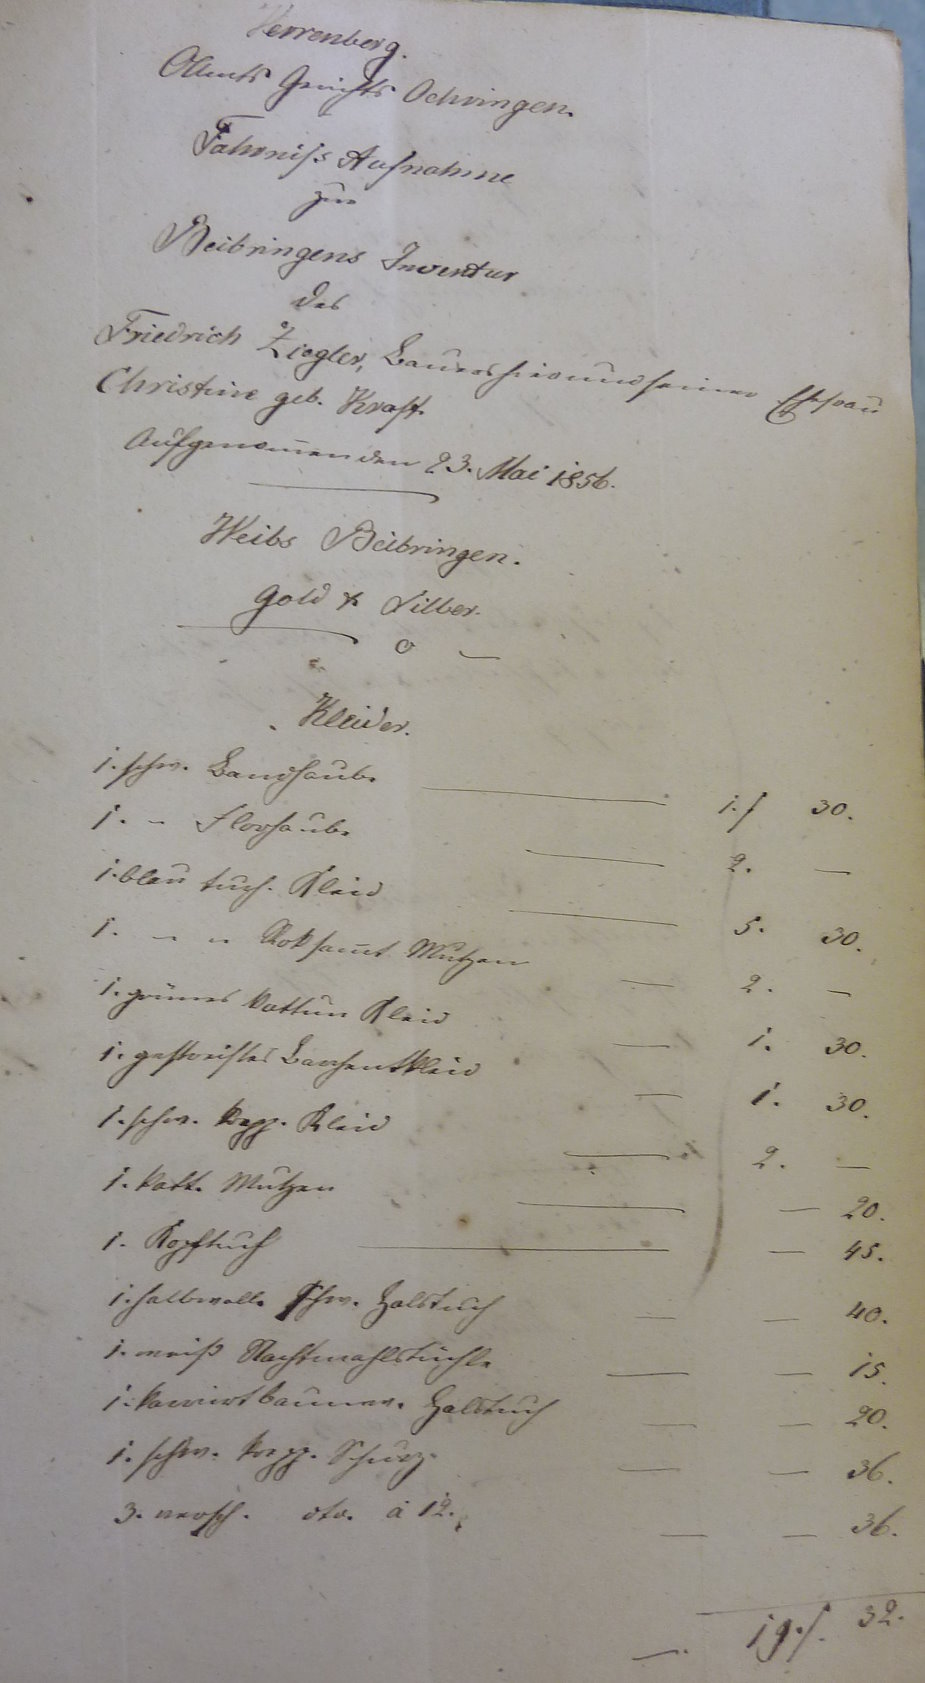 Herrenberg.
Oberamts Gerichts Oehringen.
Fahrniß Aufnahme
zur
Beibringens Inventur
des
Friedrich Ziegler, Bauers hier und seiner Ehefrau
Christine geb. Kraft.
Aufgenommen den 23. Mai 1856.
Weibs Beibringen.
Gold & Silber.
0 —
Kleider.
1. schw. Bandhaube — 1. f 30.
1. " Florhaube — 2. —
1. blau tuch. Kleid — 5. 30.
1. " " Rok samt Mutzen — 2. —
1. grünes Kattun Kleid — 1. 30.
1. gestreiftes Barchentkleid — 1. 30.
1. schw. Kepp. Kleid — 2. —
1. katt. Mutzen — — 20.
1. Kopftuch — — 45.
1. halbwoll. schw. Halstuch — — 40.
1. weiß Nachtmahlstüchle — — 15.
1. karirt baumw. Halstuch — — 20.
1. schw. kepp. Schurz. — — 36.
3. versch. dto. à 12. — — 36.
— 19. f. 32.